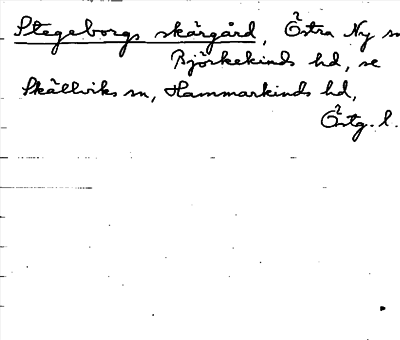 Stegeborgs skärgård, Östra Ny sn
Björkekinds hd, se
Skällviks sn, Hammarkinds hd,
Östg. l.